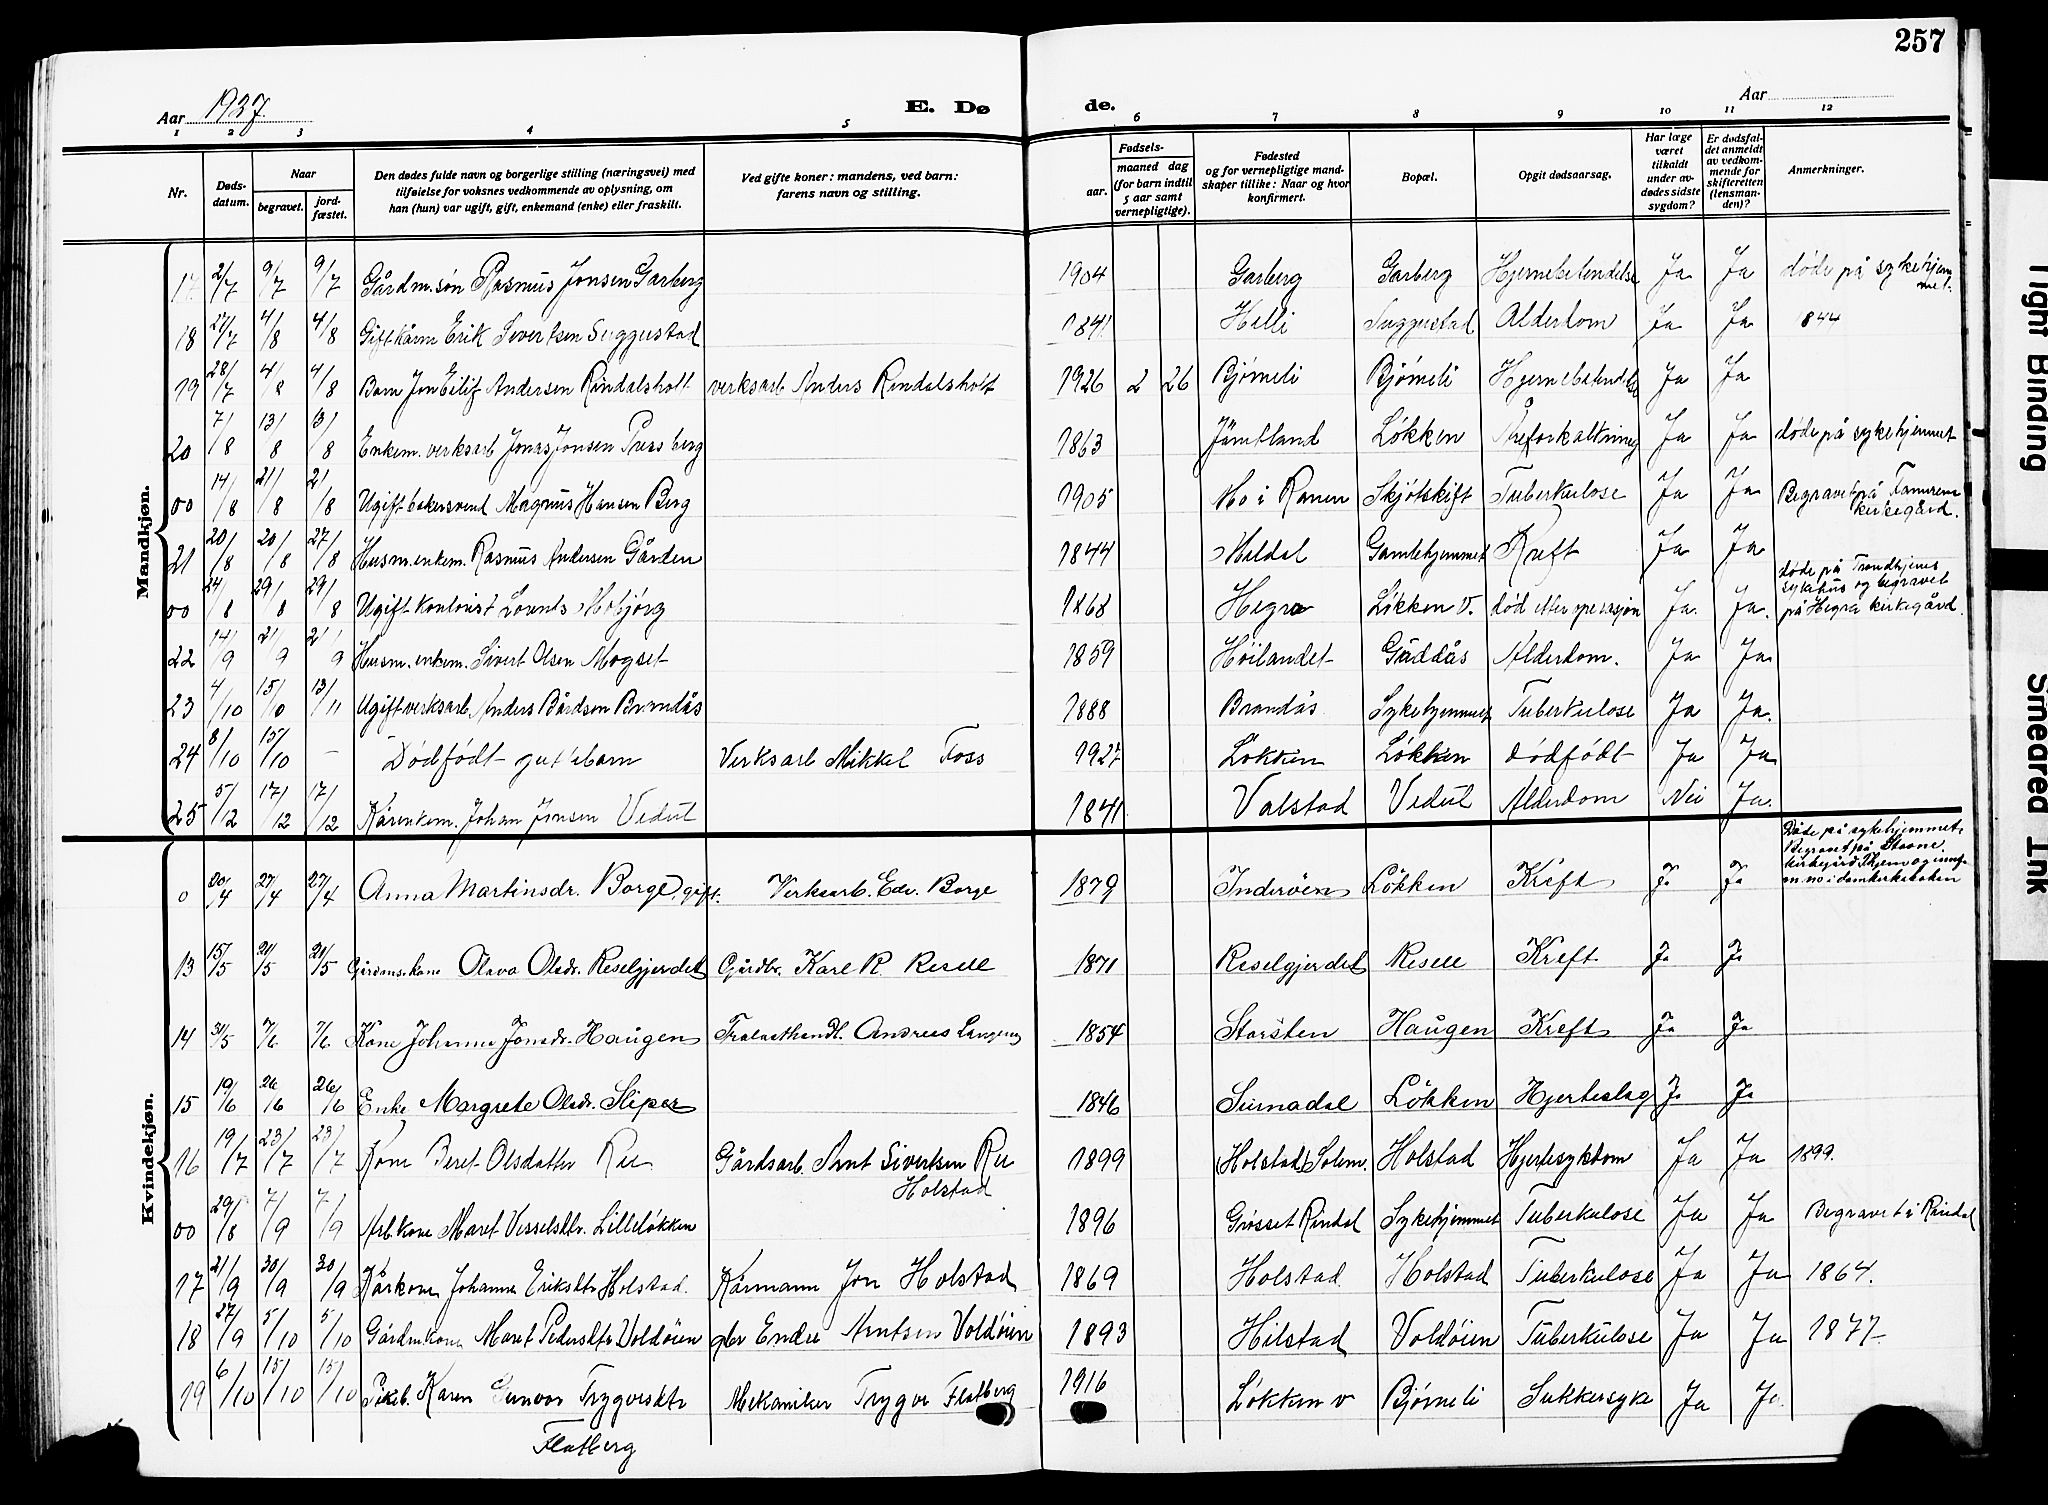 257
Aar 1927.
E. Dø de.
Aar
1 2 3 4 5 6 7 8 9 10 11 12
Nr.
Døds-
datum.
Naar
begravet.
jord-
fæstet.
Den dødes fulde navn og borgerlige stilling (næringsvei) med
tilføielse for voksnes vedkommende av oplysning, om
han (hun) var ugift, gift, enkemand (enke) eller fraskilt.
Ved gifte koner: mandens, ved barn:
farens navn og stilling.
Fødsels-
aar.
maaned dag
(for barn indtil
5 aar samt
vernepligtige).
Fødested
og for vernepligtige mand-
skaper tillike: Naar og hvor
konfirmert.
Bopæl.
Opgit dødsaarsag.
Har læge
været
tilkaldt
under av-
dødes sidste
sygdom?
Er dødsfal-
det anmeldt
av vedkom-
mende for
skifteretten
(lensman-
den)?
Anmerkninger.
Mandkjøn.
17 2/7 9/7 9/7 Gårdm.søn Rasmus Jonsen Garberg 1904 Garberg Garberg Hjernebetendelse Ja Ja døde på sykehjem
met.
18 27/7 4/8 4/8 Gift kårm Erik Sivertsen Suggustad 1841 Helli Suggustad Alderdom Ja Ja 1844
19 28/7 4/8 4/8 Barn Jon Eilif Andersen Rindalsholt verksarb Anders Rindalsholt 1926 2 26 Bjørneli Bjørneli Hjernebetendelse Ja Ja
20 7/8 13/8 13/8 Enkem. verksarb Jonas Jonsen Pressberg 1863 Jämtland Løkken Åreforkalkning Ja Ja døde på sykehjemmet
00 14/8 21/8 21/8 Ugift bakersvend Magnus Hansen Berg 1905 Mo i Ranen Skjøtskift Tuberkulose Ja Ja Begravet på
kirkegård.
21 20/8 20/8 27/8 Husm.enkem. Rasmus Andersen Gården 1844 Meldal Gamlehjemmet Kreft Ja Ja
00 24/8 29/8 29/8 Ugift kontorist Lorents Mobjørg 1868 Hegra Løkken V. død etter operasjon Ja. Ja. døde på Trondhjems
sykehus og begravet
på Hegra kirkegård.
22 14/9 21/9 21/9 Husm.enkem. Sivert Olsen Mogset 1859 Høilandet Gåddås Alderdom. Ja Ja
23 4/10 15/10 13/11 Ugift verksarb. Anders Bårdsen Brandås 1888 Brandås Sykehjemmet Tuberkulose Ja Ja.
24 8/10 15/10 – Dødfødt guttebarn Verksarb Mikkel Foss 1927 Løkken Løkken dødfødt Ja Ja
25 5/12 17/12 17/12 Kårenkem. Johan Jonsen Vedul 1841 Valstad Vedul Alderdom Nei Ja.
Kvindekjøn.
0 20/4 27/4 27/4 Anna Martinsdr. Borge, gift. Verksarb. Edv. Borge 1879 Inderøen Løkken Kreft Ja Ja Døde på sykehjemmet.
Begravet på
kirkegård
13 15/5 21/5 21/5 Gårdms.kone Olava Olsdr. Reselgjerdet Gårdbr. Karl R Resell 1871 Reselgjerdet Resell Kreft Ja Ja
14 31/5 7/6 7/6 Kone Johanna Jonsdr. Haugen Trælasthandl. Andreas Haugen 1854 Storsten Haugen Kreft Ja Ja
15 19/6 26/6 26/6 Enke Margrete Olsdr. Sliper 1846 Surnadal Løkken Hjerteslag Ja Ja
16 19/7 23/7 23/7 Kone Beret Olsdatter Ru Gårdsarb. Arnt Sivertsen Ru
Holstad 1899 Holstad Solem. Holstad Hjertesykdom Ja Ja 1899.
00 29/8 7/9 7/9 Arb.kone Maret Vesselsdtr. Lilleløkken 1896 Grøsset Rindal Sykehjemmet Tuberkulose Ja Ja Begravet i Rindal
17 21/9 30/9 30/9 Kårkone Johanna Eriksdtr Holstad. Kårmann Jon Holstad 1869 Holstad Holstad Tuberkulose Ja Ja 1864.
18 27/9 5/10 5/10 Gårdmkone Maret Pedersdtr Voldøien gbr Endre Arntsen Voldøien 1893 Hilstad Voldøien Tuberkulose Ja Ja 1877
19 6/10 15/10 15/10 Pikeb. Karen Gunvor Trygvesdtr
Flatberg Mekaniker Trygve Flatberg 1916 Løkken v Bjørneli Sukkersyke Ja Ja
Tight Binding
Smeared Ink